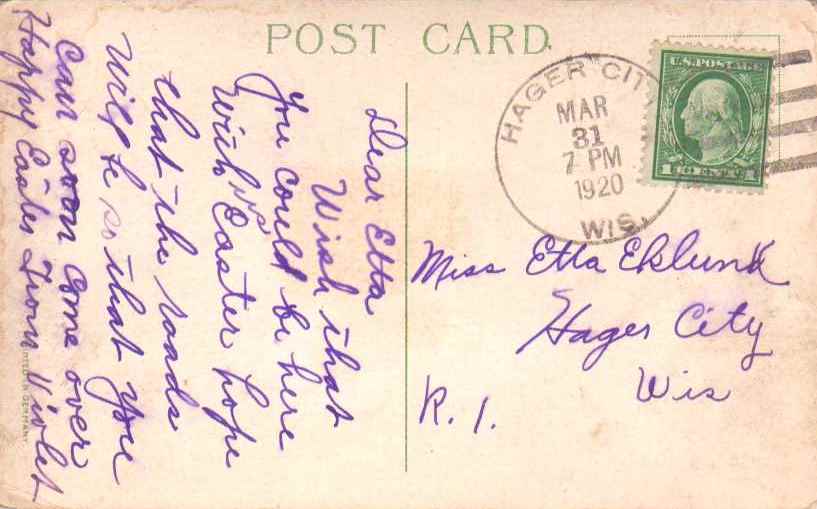 POST CARD
HAGER CITY
MAR
31
7 PM
1920
WIS.
U.S. POSTAGE
1 1
Dear Etta
Wish that
You could be here
with us Easter hope
that the roads
will be so that you
can soon come over
Happy Easter From Violet
Miss Etta Eklund
Hager City
Wis
R. 1.
PRINTED IN GERMANY